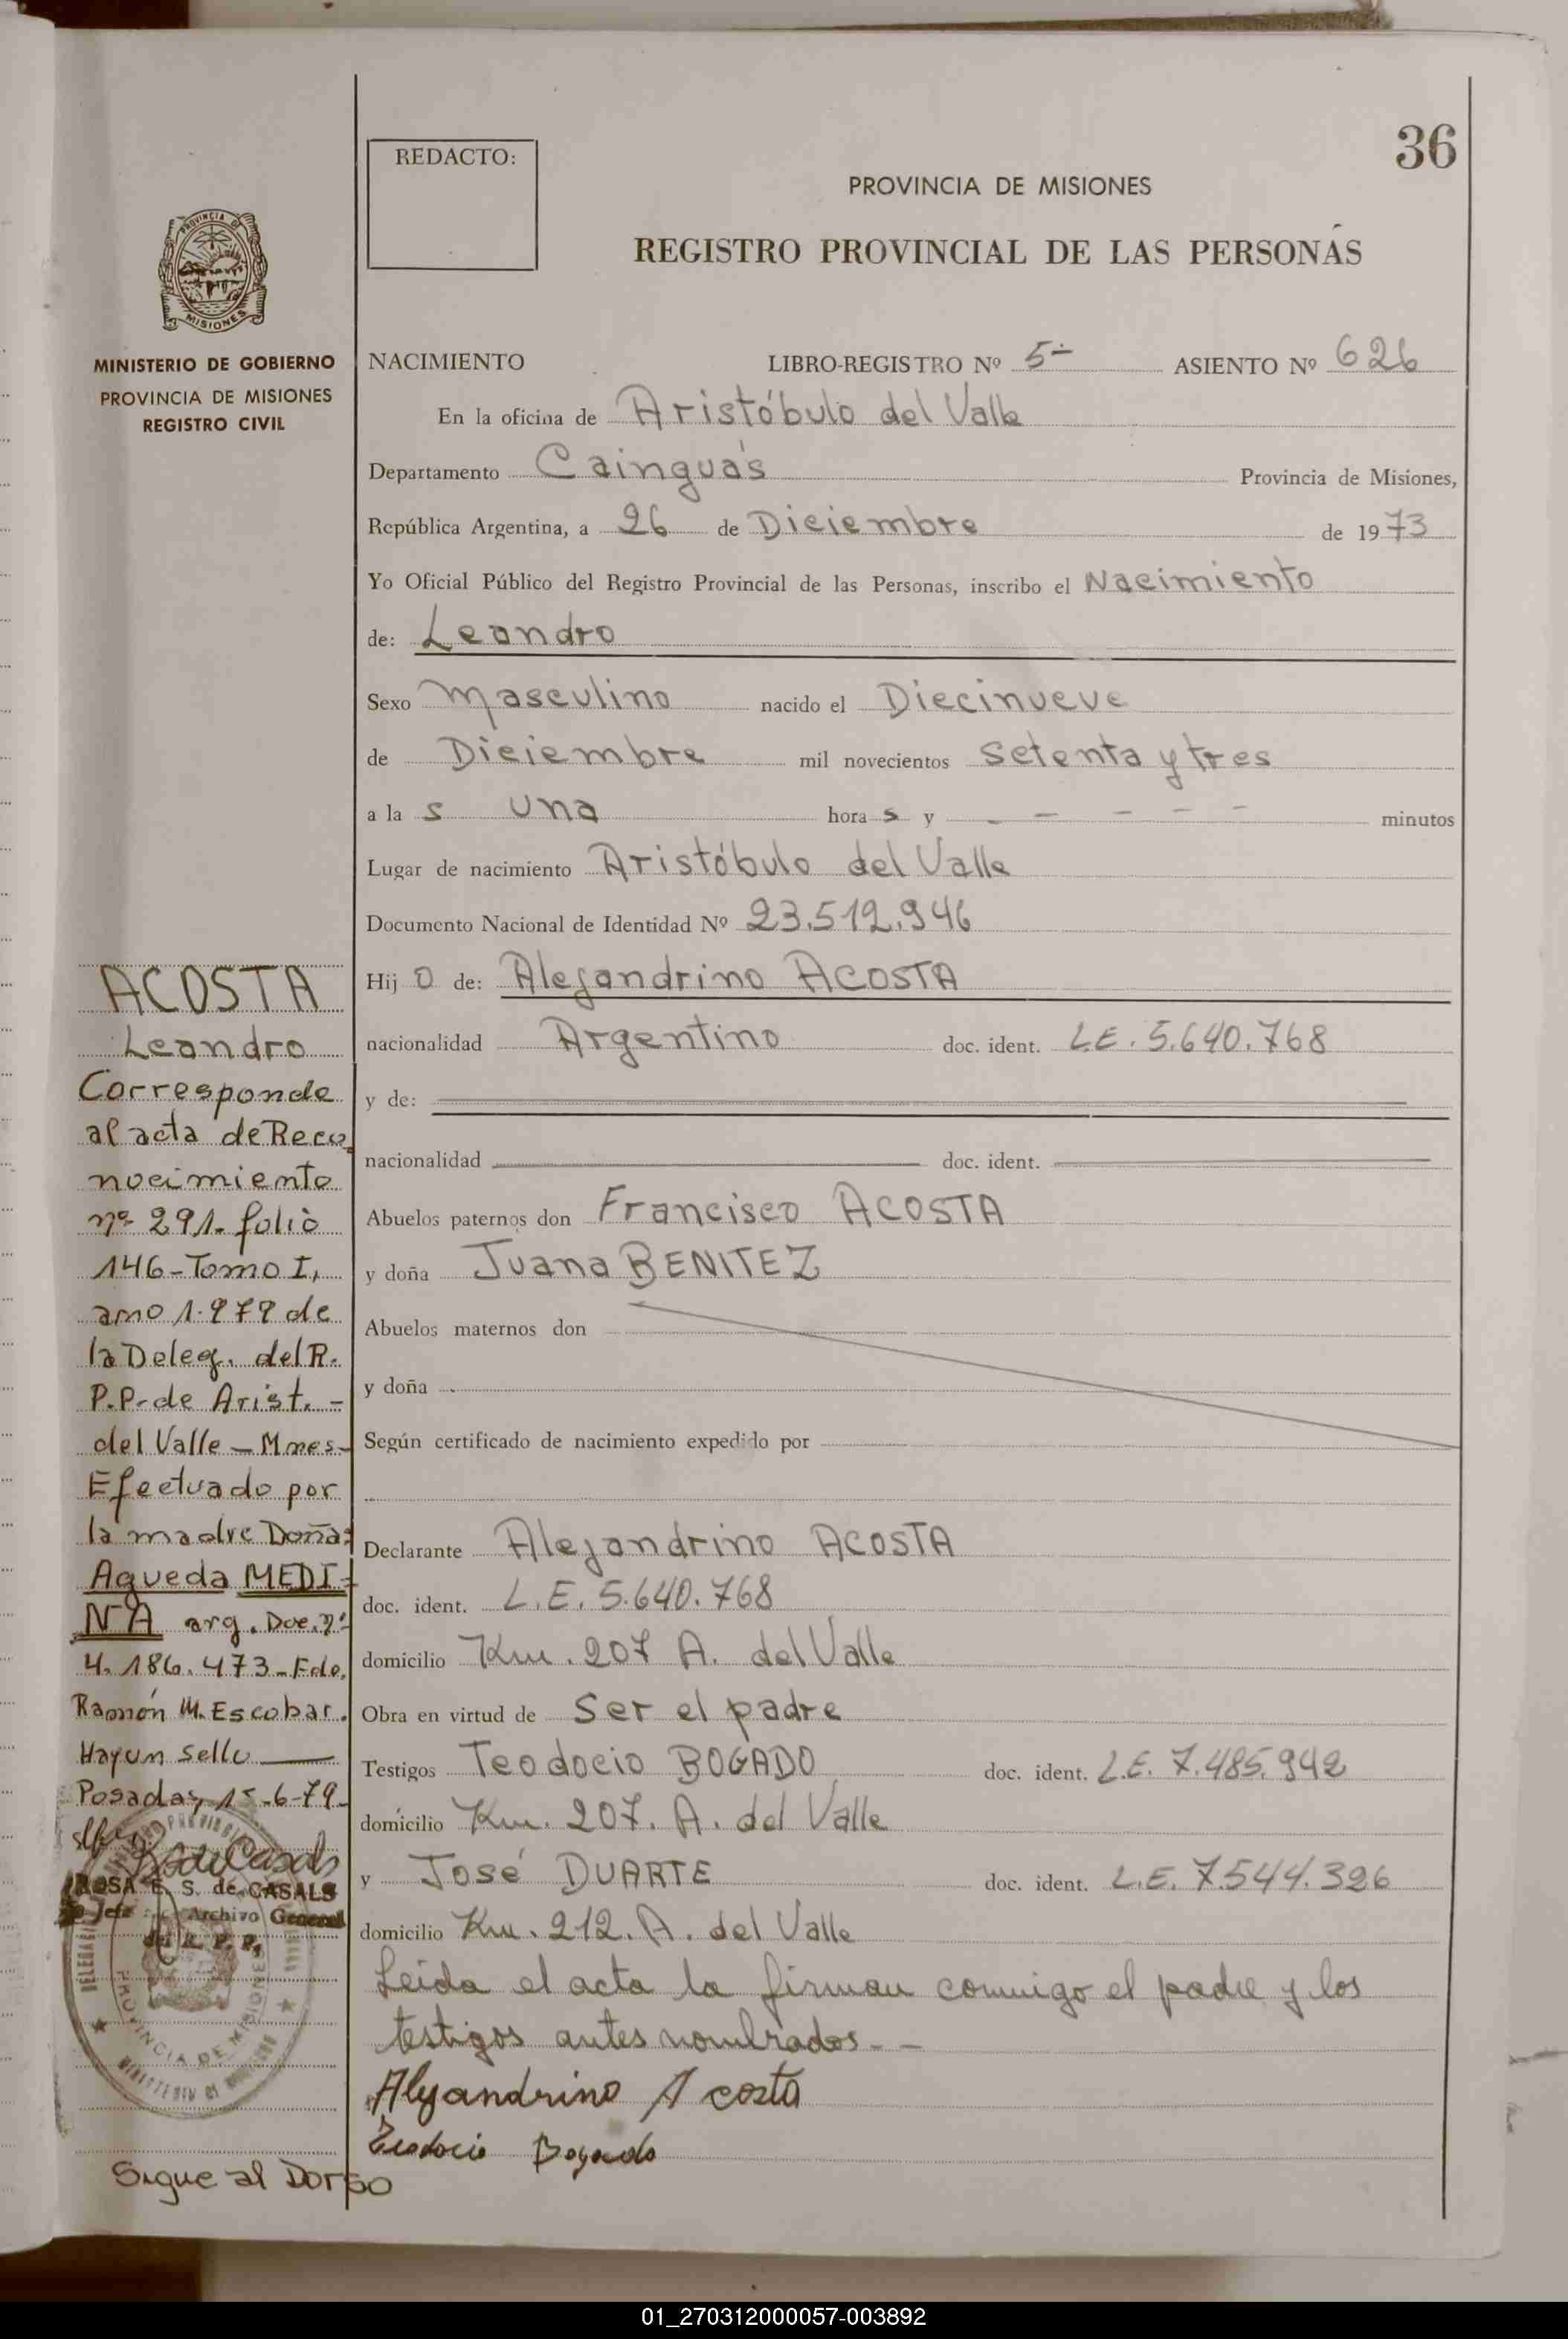 36
REDACTO:
PROVINCIA DE MISIONES
REGISTRO PROVINCIAL DE LAS PERSONAS
PROVINCIA DE
MISIONES
MINISTERIO DE GOBIERNO
PROVINCIA DE MISIONES
REGISTRO CIVIL
NACIMIENTO LIBRO-REGISTRO Nº 5- ASIENTO Nº 626
En la oficina de Aristóbulo del Valle
Departamento Cainguás Provincia de Misiones,
República Argentina, a 26 de Diciembre de 1973
Yo Oficial Público del Registro Provincial de las Personas, inscribo el Nacimiento
de: Leandro
Sexo Masculino nacido el Diecinueve
de Diciembre mil novecientos setenta y tres
a la s una hora s y - - - - - minutos
Lugar de nacimiento Aristóbulo del Valle
Documento Nacional de Identidad Nº 23.512.946
Hij o de: Alejandrino ACOSTA
nacionalidad Argentino doc. ident. L.E. 5.640.768
y de:
nacionalidad doc. ident.
Abuelos paternos don Francisco ACOSTA
y doña Juana BENITEZ
Abuelos maternos don
y doña
Según certificado de nacimiento expedido por
Declarante Alejandrino ACOSTA
doc. ident. L.E. 5.640.768
domicilio Km. 207 A. del Valle
Obra en virtud de Ser el padre
Testigos Teodocio BOGADO doc. ident. L.E. 7.485.942
domicilio Km. 207. A. del Valle
y José DUARTE doc. ident. L.E. 7.544.326
domicilio Km. 212. A. del Valle
Leida el acta la firman conmigo el padre y los
testigos antes nombrados. -
Alejandrino Acosta
Teodocio Bogado
ACOSTA
Leandro
Corresponde
al acta de Reco
nocimiento
nº 291. folio
146-Tomo I,
año 1.979 de
la Deleg. del R.
P.P. de Arist. -
del Valle - Mnes-
Efectuado por
la madre Doña:
Agueda MEDI-
NA arg. Doc. nº
4.186.473-Fdo.
Ramón M. Escobar.
Hay un sello
Posadas, 15-6-79-
ROSA E. S. de CASALS
Jefe Archivo General
del R. P. P.
PROVINCIA DE MISIONES
Sigue al Dorso
01_270312000057-003892